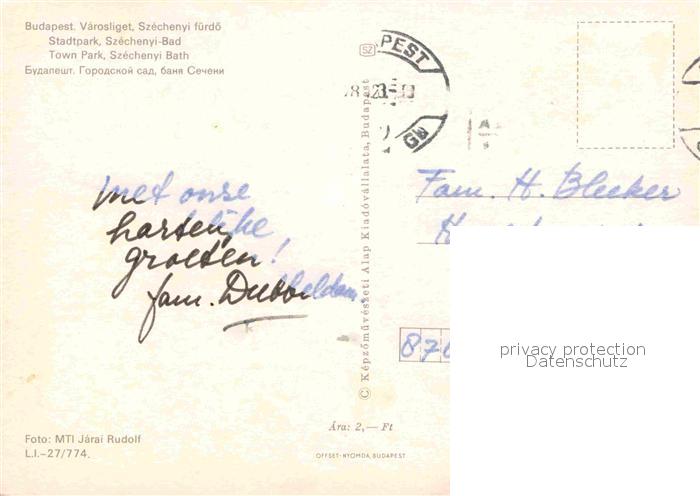 Budapest. Városliget, Széchenyi fürdő
Stadtpark, Széchenyi-Bad
Town Park, Széchenyi Bath
Будапешт. Городской сад, баня Сечени
SZ
PEST
met onse
hartelijke
groeten!
fam.
© Képzőművészeti Alap Kiadóvállalata, Budapest
Fam. H. Bleeker
876
privacy protection
Datenschutz
Ára: 2,— Ft
Foto: MTI Járai Rudolf
L.I.-27/774.
OFFSET-NYOMDA, BUDAPEST